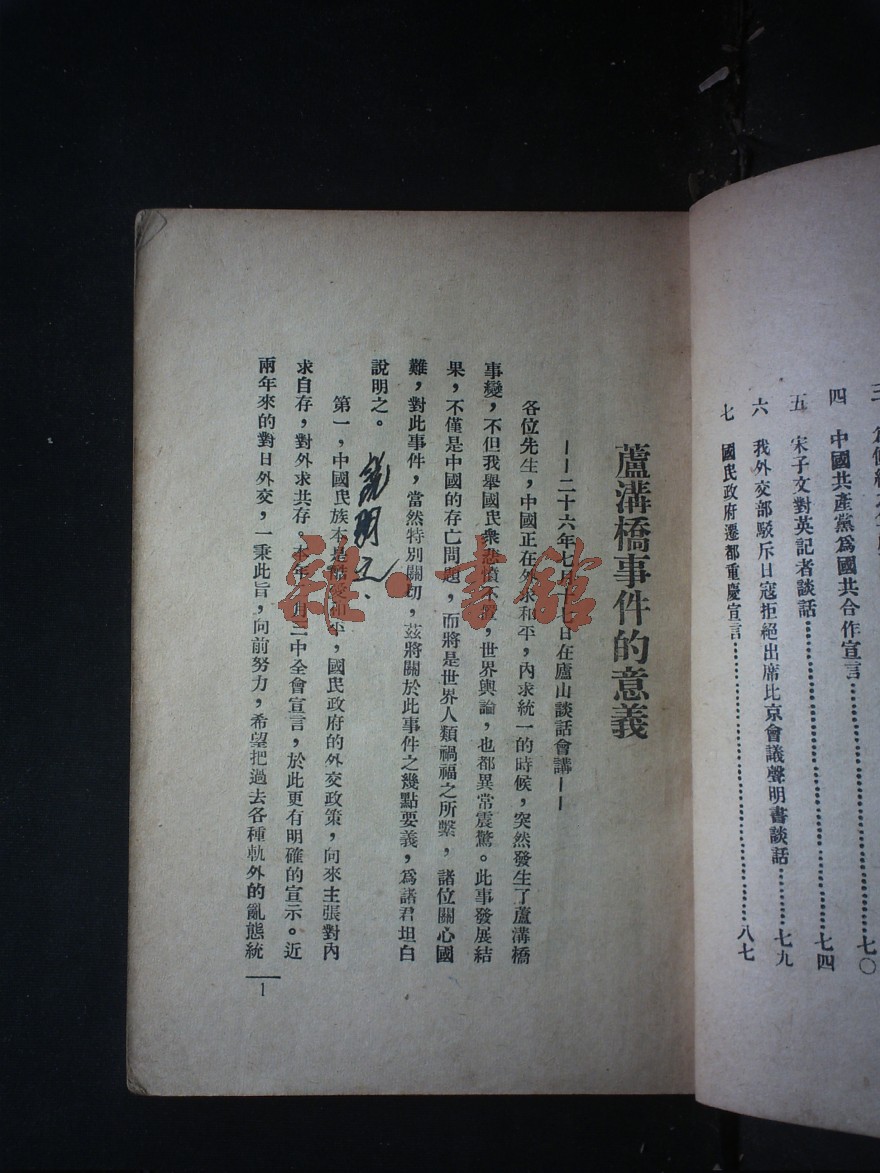 三
四 中國共產黨爲國共合作宣言…………七〇
五 宋子文對英記者談話…………七四
六 我外交部駁斥日寇拒絕出席比京會議聲明書談話…………七九
七 國民政府遷都重慶宣言…………八七
蘆溝橋事件的意義
——二十六年七月十七日在廬山談話會講——
各位先生，中國正在外求和平，內求統一的時候，突然發生了蘆溝橋
事變，不但我舉國民衆悲憤不置，世界輿論，也都異常震驚。此事發展結
果，不僅是中國的存亡問題，而將是世界人類禍福之所繫，諸位關心國
難，對此事件，當然特別關切，茲將關於此事件之幾點要義，爲諸君坦白
說明之。
第一，中國民族本是酷愛和平，國民政府的外交政策，向來主張對內
求自存，對外求共存。本年二月三中全會宣言，於此更有明確的宣示。近
兩年來的對日外交，一秉此旨，向前努力，希望把過去各種軌外的亂態統
1
雜·書館